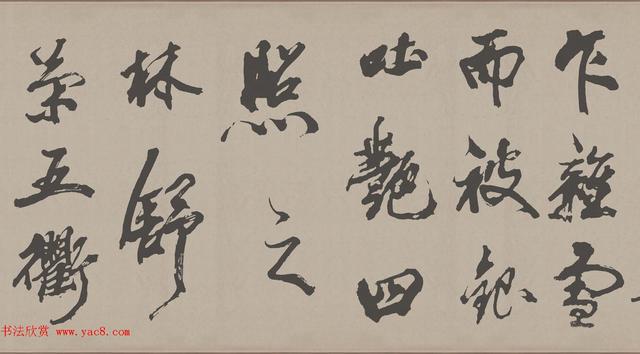 乍雜雪
而被銀
吐艷四
照之
林舒
榮五衢
书法欣赏 www.yac8.com